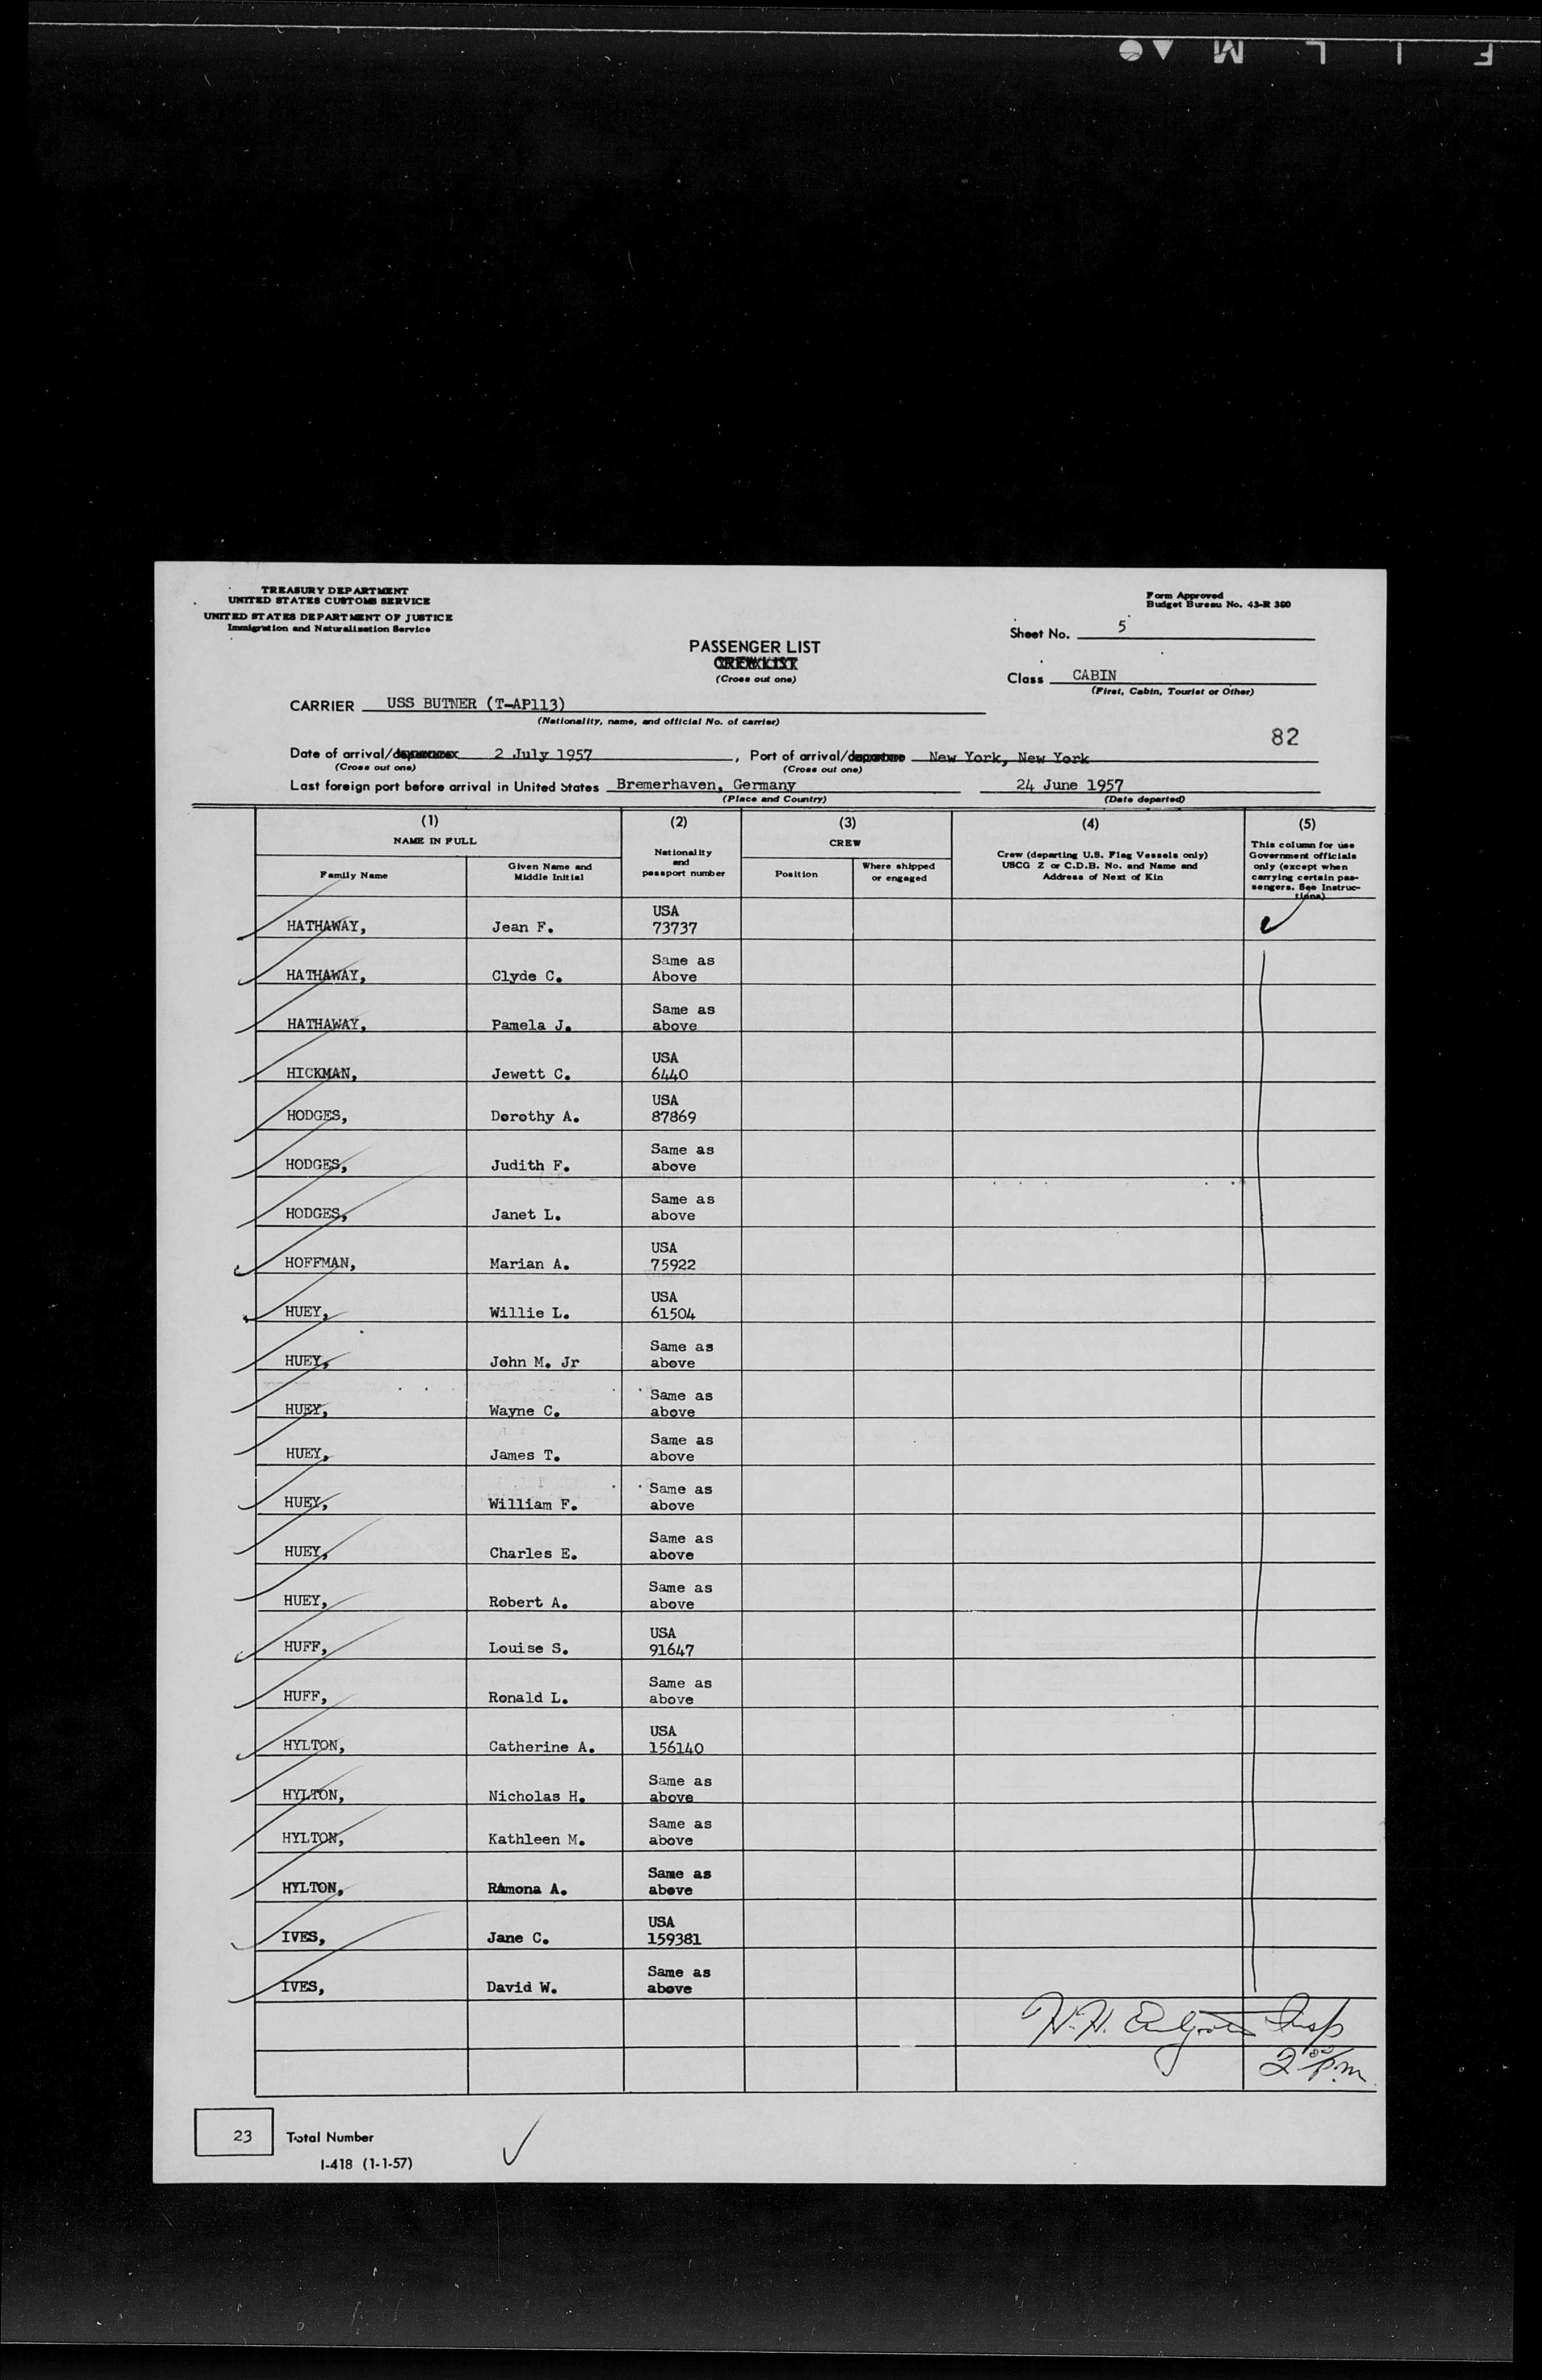 F I L M
TREASURY DEPARTMENT
UNITED STATES CUSTOMS SERVICE
UNITED STATES DEPARTMENT OF JUSTICE
Immigration and Naturalization Service
Form Approved
Budget Bureau No. 43-R 380
Sheet No. 5
PASSENGER LIST
CREW LIST
(Cross out one)
Class CABIN
(First, Cabin, Tourist or Other)
CARRIER USS BUTNER (T-AP113)
(Nationality, name, and official No. of carrier)
82
Date of arrival/departure 2 July 1957, Port of arrival/departure New York, New York
(Cross out one) (Cross out one)
Last foreign port before arrival in United States Bremerhaven, Germany 24 June 1957
(Place and Country) (Date departed)
(1) (2) (3) (4) (5)
NAME IN FULL Nationality and passport number CREW Crew (departing U.S. Flag Vessels only) USCG Z or C.D.B. No. and Name and Address of Next of Kin This column for use Government officials only (except when carrying certain passengers. See Instructions)
Family Name Given Name and Middle Initial Position Where shipped or engaged
HATHAWAY, Jean F. USA 73737
HATHAWAY, Clyde C. Same as Above
HATHAWAY, Pamela J. Same as above
HICKMAN, Jewett C. USA 6440
HODGES, Dorothy A. USA 87869
HODGES, Judith F. Same as above
HODGES, Janet L. Same as above
HOFFMAN, Marian A. USA 75922
HUEY, Willie L. USA 61504
HUEY, John M. Jr Same as above
HUEY, Wayne C. Same as above
HUEY, James T. Same as above
HUEY, William F. Same as above
HUEY, Charles E. Same as above
HUEY, Robert A. Same as above
HUFF, Louise S. USA 91647
HUFF, Ronald L. Same as above
HYLTON, Catherine A. USA 156140
HYLTON, Nicholas H. Same as above
HYLTON, Kathleen M. Same as above
HYLTON, RAmona A. Same as above
IVES, Jane C. USA 159381
IVES, David W. Same as above
Insp
2 00 p.m.
23 Total Number
I-418 (1-1-57)